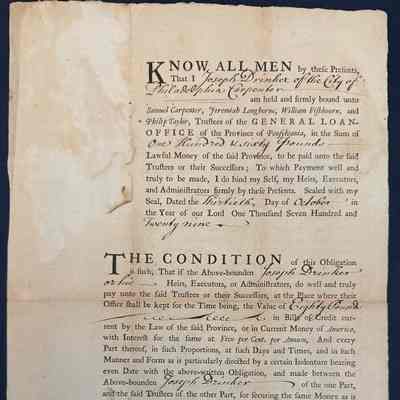 KNOW ALL MEN by these Presents,
That I Joseph Drinker of the City of
Philadelphia Carpenter
am held and firmly bound unto
Samuel Carpenter, Jeremiah Langhorne, William Fishbourn, and
Philip Taylor, Trustees of the GENERAL LOAN-
OFFICE of the Province of Pensilvania, in the Sum of
One Hundred & Sixty Pounds
Lawful Money of the said Province, to be paid unto the said
Trustees or their Successors; To which Payment well and
truly to be made, I do bind my Self, my Heirs, Executors,
and Administrators firmly by these Presents. Sealed with my
Seal, Dated the Thirtieth Day of October in
the Year of our Lord One Thousand Seven Hundred and
Twenty nine
THE CONDITION of this Obligation
is such, That if the Above-bounden Joseph Drinker
or his Heirs, Executors, or Administrators, do well and truly
pay unto the said Trustees or their Successors, at the Place where their
Office shall be kept for the Time being, the Value of Eighty Pounds
in Bills of Credit cur-
rent by the Law of the said Province, or in Current Money of America,
with Interest for the same at Five per Cent. per Annum, And every
Part thereof, in such Proportions, at such Days and Times, and in such
Manner and Form as is particularly directed by a certain Indenture bearing
even Date with the above-written Obligation, and made between the
Above-bounden Joseph Drinker of the one Part,
and the said Trustees of the other Part, for securing the same Money as is